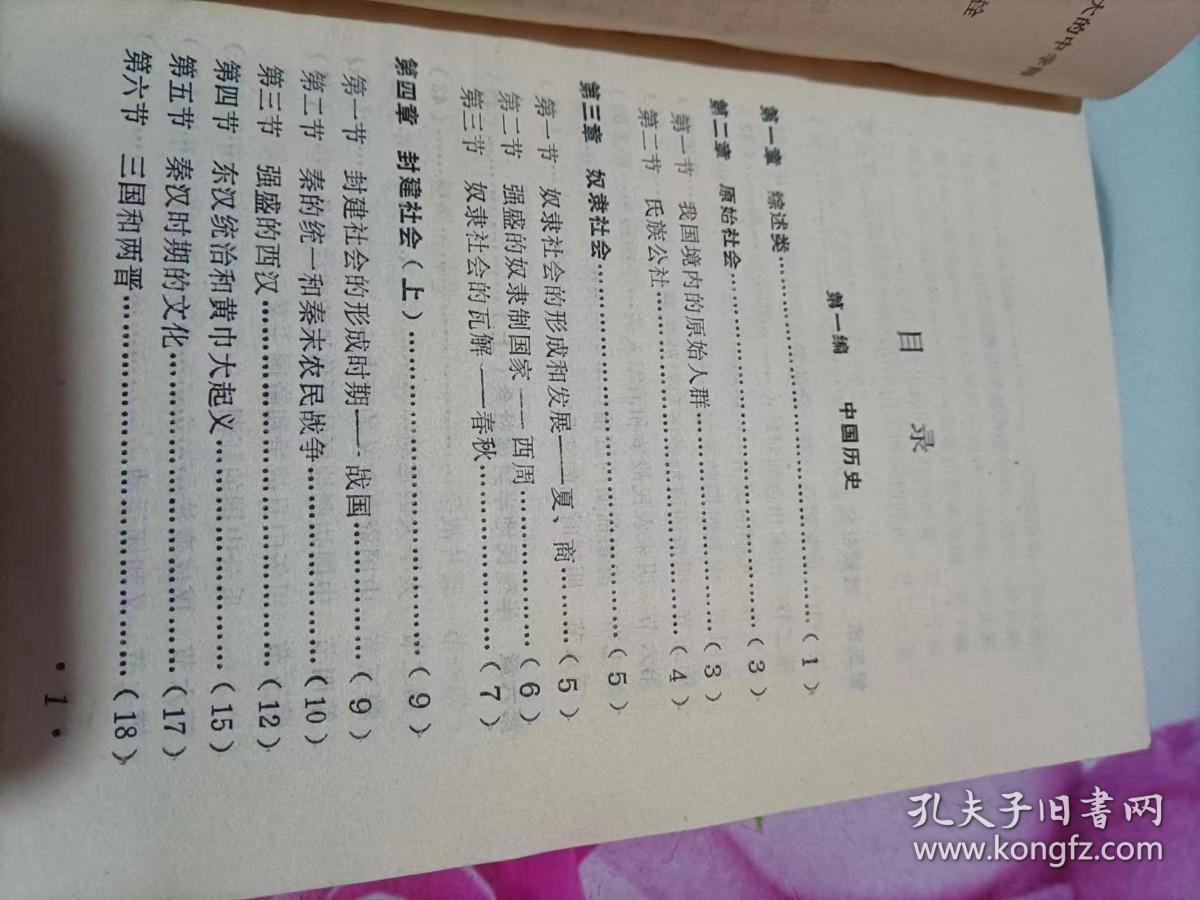 目录
第一编 中国历史
第一章 综述类……………………………（1）
第二章 原始社会…………………………（3）
第一节 我国境内的原始人群……………（3）
第二节 氏族公社…………………………（4）
第三章 奴隶社会…………………………（5）
第一节 奴隶社会的形成和发展——夏、商……（5）
第二节 强盛的奴隶制国家——西周………（6）
第三节 奴隶社会的瓦解——春秋…………（7）
第四章 封建社会（上）……………………（9）
第一节 封建社会的形成时期——战国……（9）
第二节 秦的统一和秦末农民战争…………（10）
第三节 强盛的西汉…………………………（12）
第四节 东汉统治和黄巾大起义……………（15）
第五节 秦汉时期的文化……………………（17）
第六节 三国和两晋…………………………（18）
·1·
孔夫子旧书网
www.kongfz.com